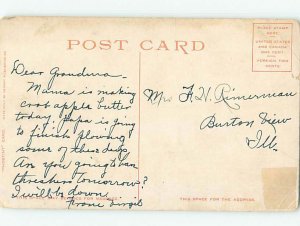 PLACE STAMP HERE
UNITED STATES
AND CANADA
ONE CENT
FOREIGN TWO
CENTS
POST CARD
Dear Grandma
Mama is making
crab apple butter
today. Papa is going
to finish plowing
some of these days.
Are you going to have
threshers tomorrow?
I will be down
From Virgil
Mrs F. W. Rimerman
Burton View
Ill.
THIS SPACE FOR THE ADDRESS.